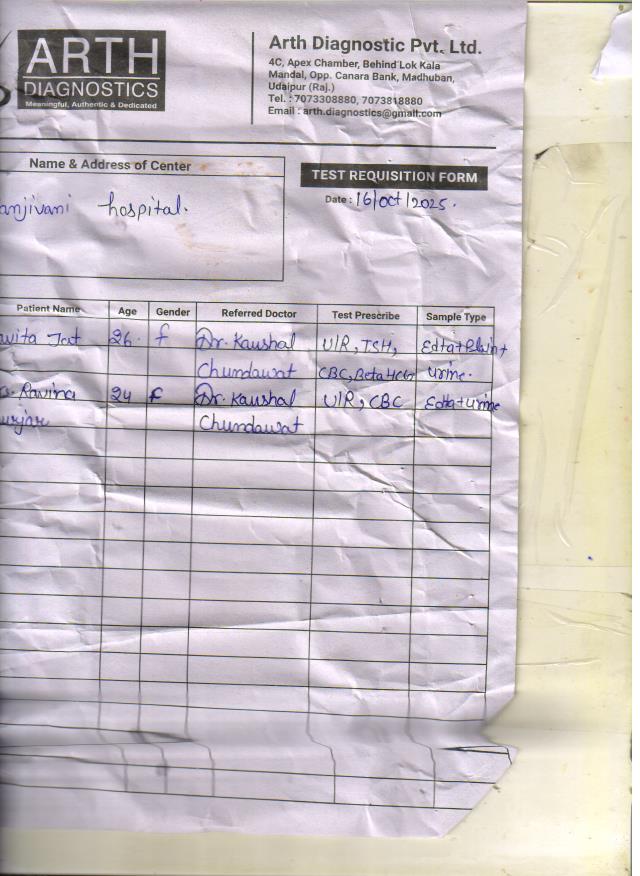 ARTH
DIAGNOSTICS
Meaningful, Authentic & Dedicated
Arth Diagnostic Pvt. Ltd.
4C, Apex Chamber, Behind Lok Kala
Mandal, Opp. Canara Bank, Madhuban,
Udaipur (Raj.)
Tel. : 7073308880, 7073818880
Email : arth.diagnostics@gmail.com
Name & Address of Center
TEST REQUISITION FORM
Date : 16/oct/2025.
anjivani hospital.
Patient Name Age Gender Referred Doctor Test Prescribe Sample Type
wita Jat 26. f Dr. Kaushal U/R, TSH, Edta+Plain+
Chundawat CBC, Beta HCG urine.
Ravina 24 f Dr. Kaushal U/R, CBC Edta+urine
urjar Chundawat